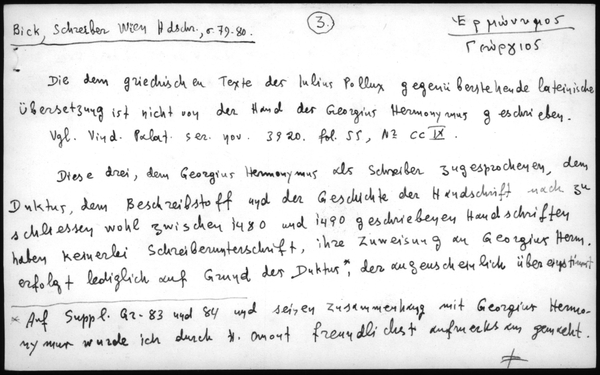 Bick, Schreiber Wien Hdschr., σ. 79-80.
3.
Ἑρμώνυμος
Γεώργιος
Die dem griechischen Texte des Iulius Pollux gegenüberstehende lateinische
Übersetzung ist nicht von der Hand des Georgius Hermonymus geschrieben.
Vgl. Vind. Palat. ser. nov. 3920. fol. 55, Nr CC IX.
Diese drei, dem Georgius Hermonymus als Schreiber zugesprochenen, dem
Duktus, dem Beschreibstoff und der Geschichte der Handschrift nach zu
schliessen wohl zwischen 1480 und 1490 geschriebenen Handschriften
haben keinerlei Schreiberunterschrift, ihre Zuweisung an Georgius Herm.
erfolgt lediglich auf Grund des Duktus*, der augenscheinlich übereinstimmt
* Auf Suppl. Gr. 83 und 84 und seinen Zusammenhang mit Georgius Hermo-
nymus wurde ich durch H. Omont freundlichst aufmerksam gemacht.